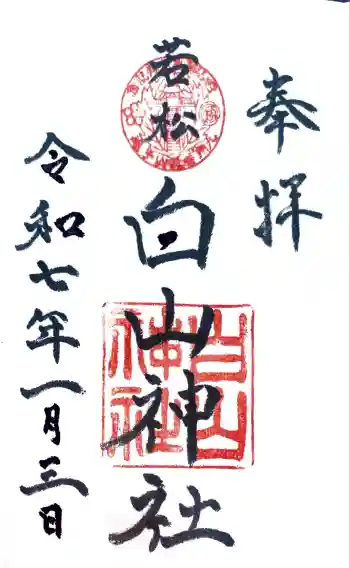 奉拝
若松
白山神社
白山神社
令和七年一月三日